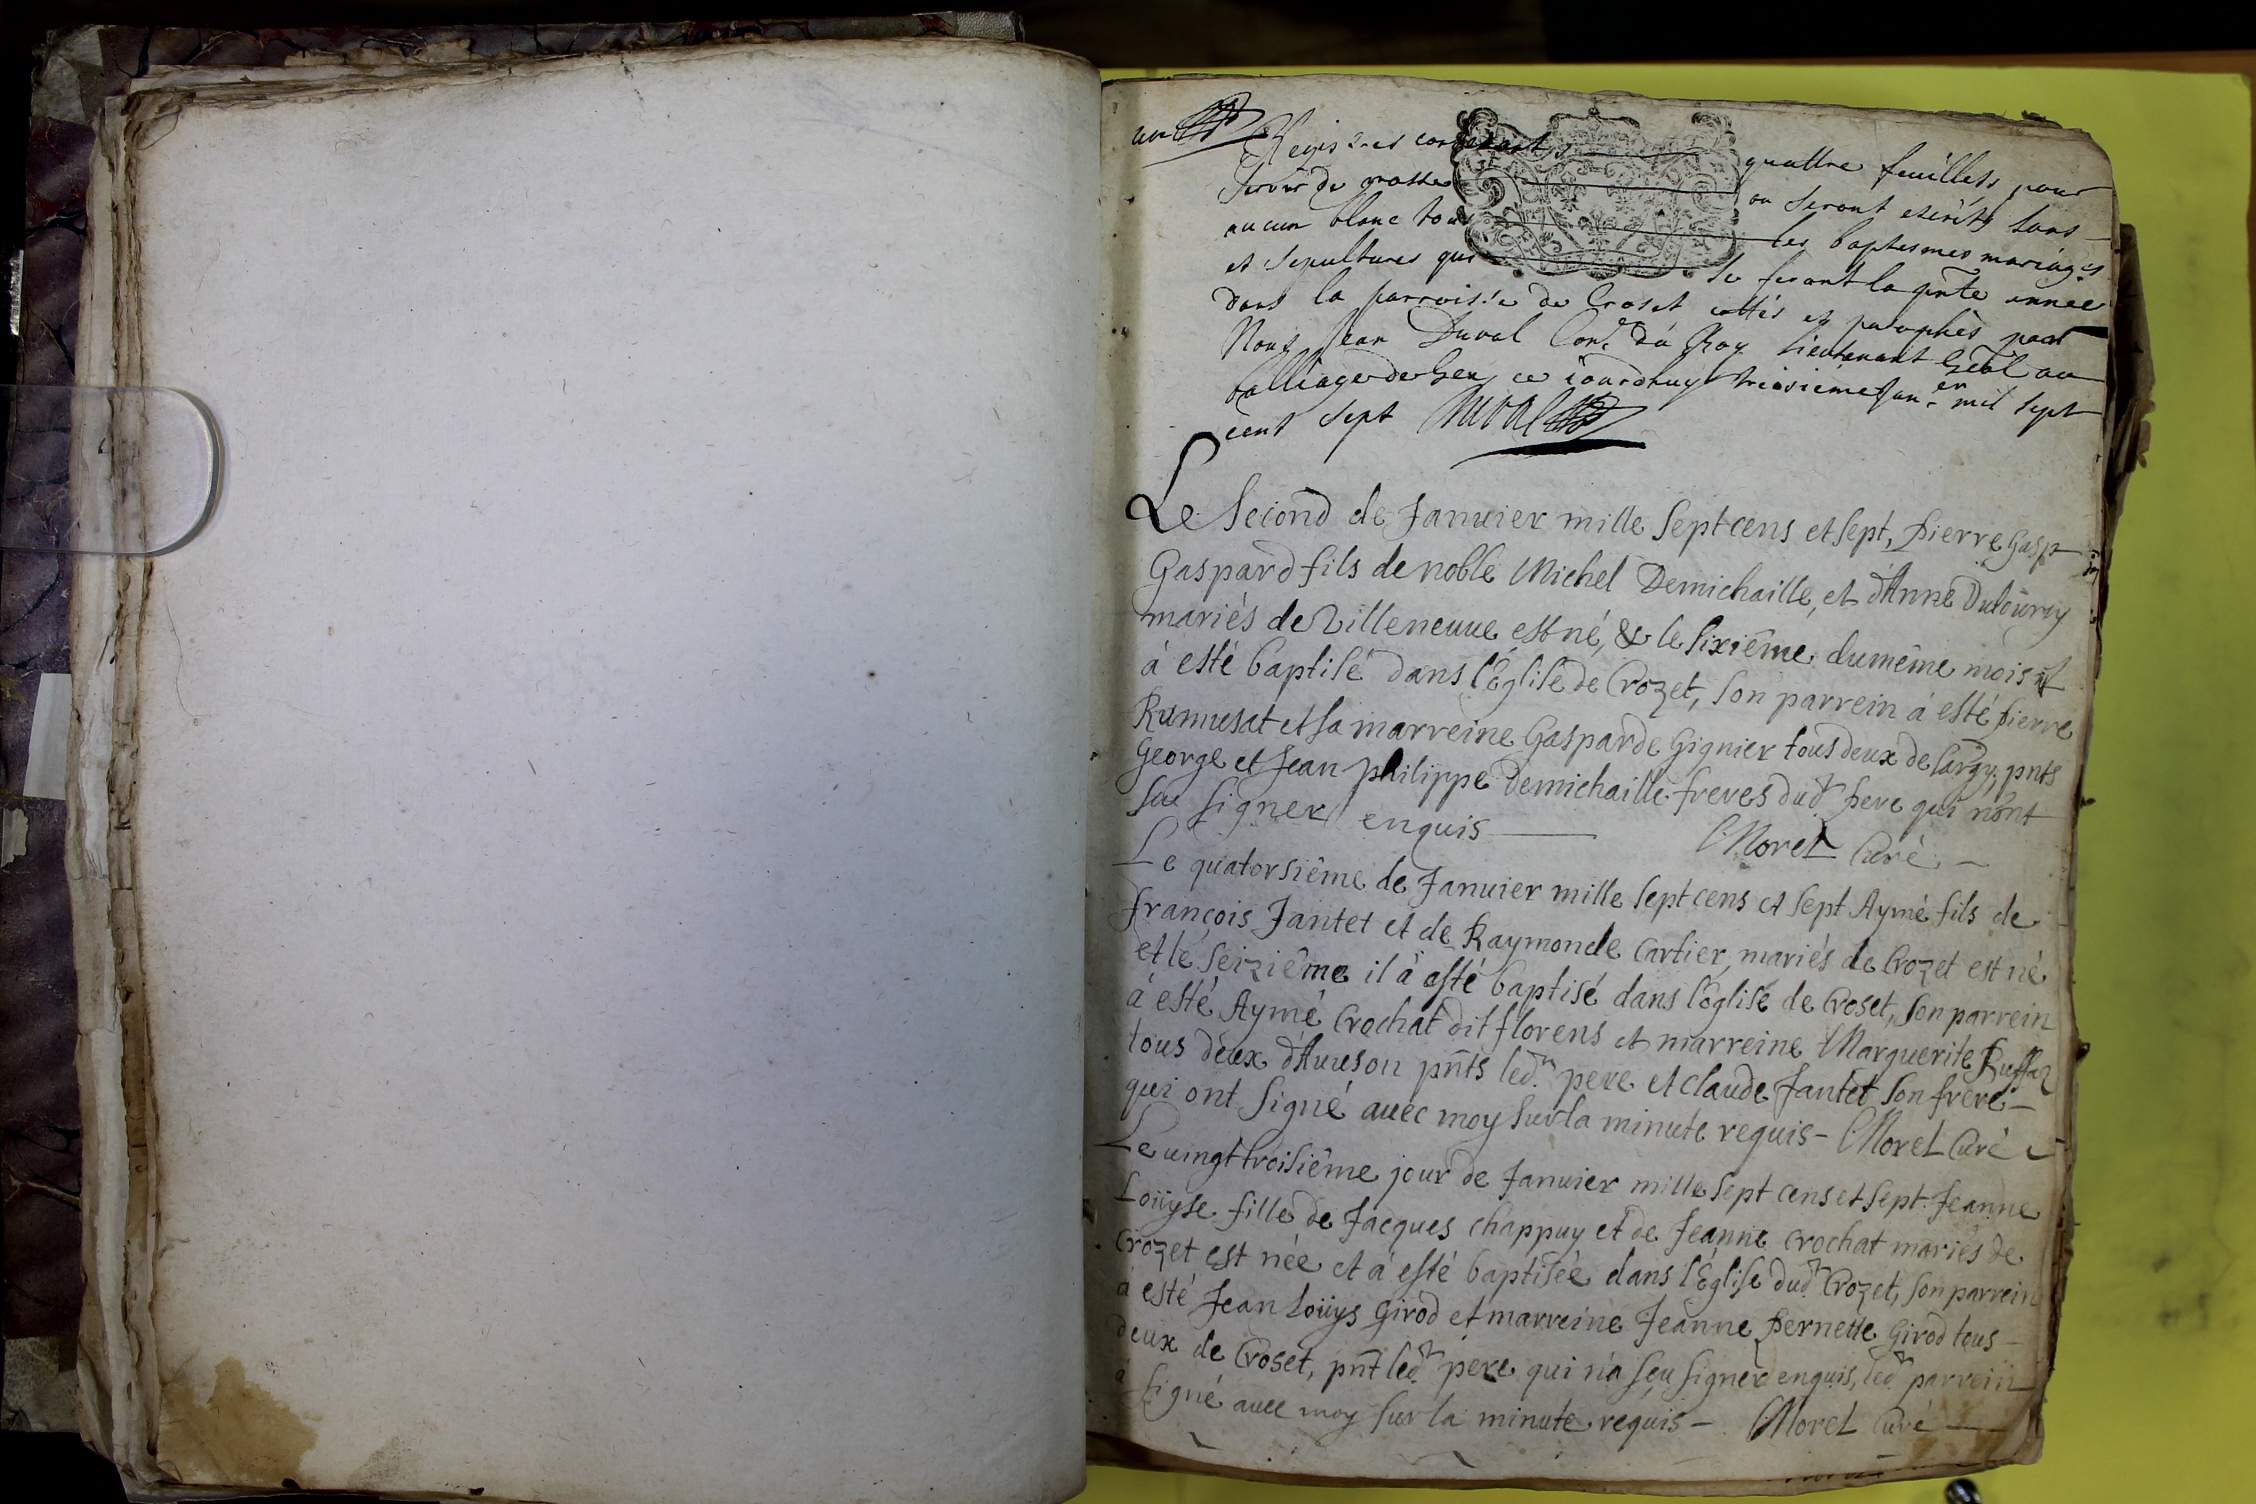 un
Regis2es contenants quattre feuillets pour
servir de grosse ou seront escrits sans
aucun blanc tous les baptesmes mariages
et sepultures qui se feront la pnte année
dans la parroisse de Croset cottés et paraphès par
Nous Jean Duval Conr. du Roy Lieutenant Gêal au
balliage de Gex ce iourdhuy troisieme Janer. mil sept
cent sept Duval
Le second de Januier mille sept cens et sept, pierre Gasp
Gaspard fils de noble Michel Demichaille, et d'Anne
mariés de Villeneuue est né, & le sixiême du mème mois il
á esté baptisé dans l'Eglise de Crozet, son parrein á esté pierre
Ramusat et sa marreine Gasparde Gignier tous deux de pnts
George et Jean philippe Demichaille freres dudt pere qui n'ont
sceu signer enquis Morel Curé
Le quatorsiême de Januier mille sept cens et sept Aymé fils de
françois Jantet et de Raymonde Cartier, mariés de Crozet est né
et le seiziême il á esté baptisé dans l'église de Croset, son parrein
á esté Aymé Crochat dit florens et marreine Marguerite Ruffaz
tous deux d'Auuson pnts ledt pere et claude Jantet son frere
qui ont signé auec moy sur la minute requis - Morel Curé
Le uingt troisiême jour de Januier mille sept cens et sept Jeanne
Loüyse fille de Jacques chappuy et de Jeanne Crochat mariés de
Crozet est née et á esté baptisée dans l'Eglise dudt Crozet, son parrein
á esté Jean Loüys Girod et marreine Jeanne Pernette Girod tous
deux de Croset, pnt ledt pere qui n'a sçeu signer enquis, ledt parrein
á signé auec moy sur la minute requis - Morel Curé